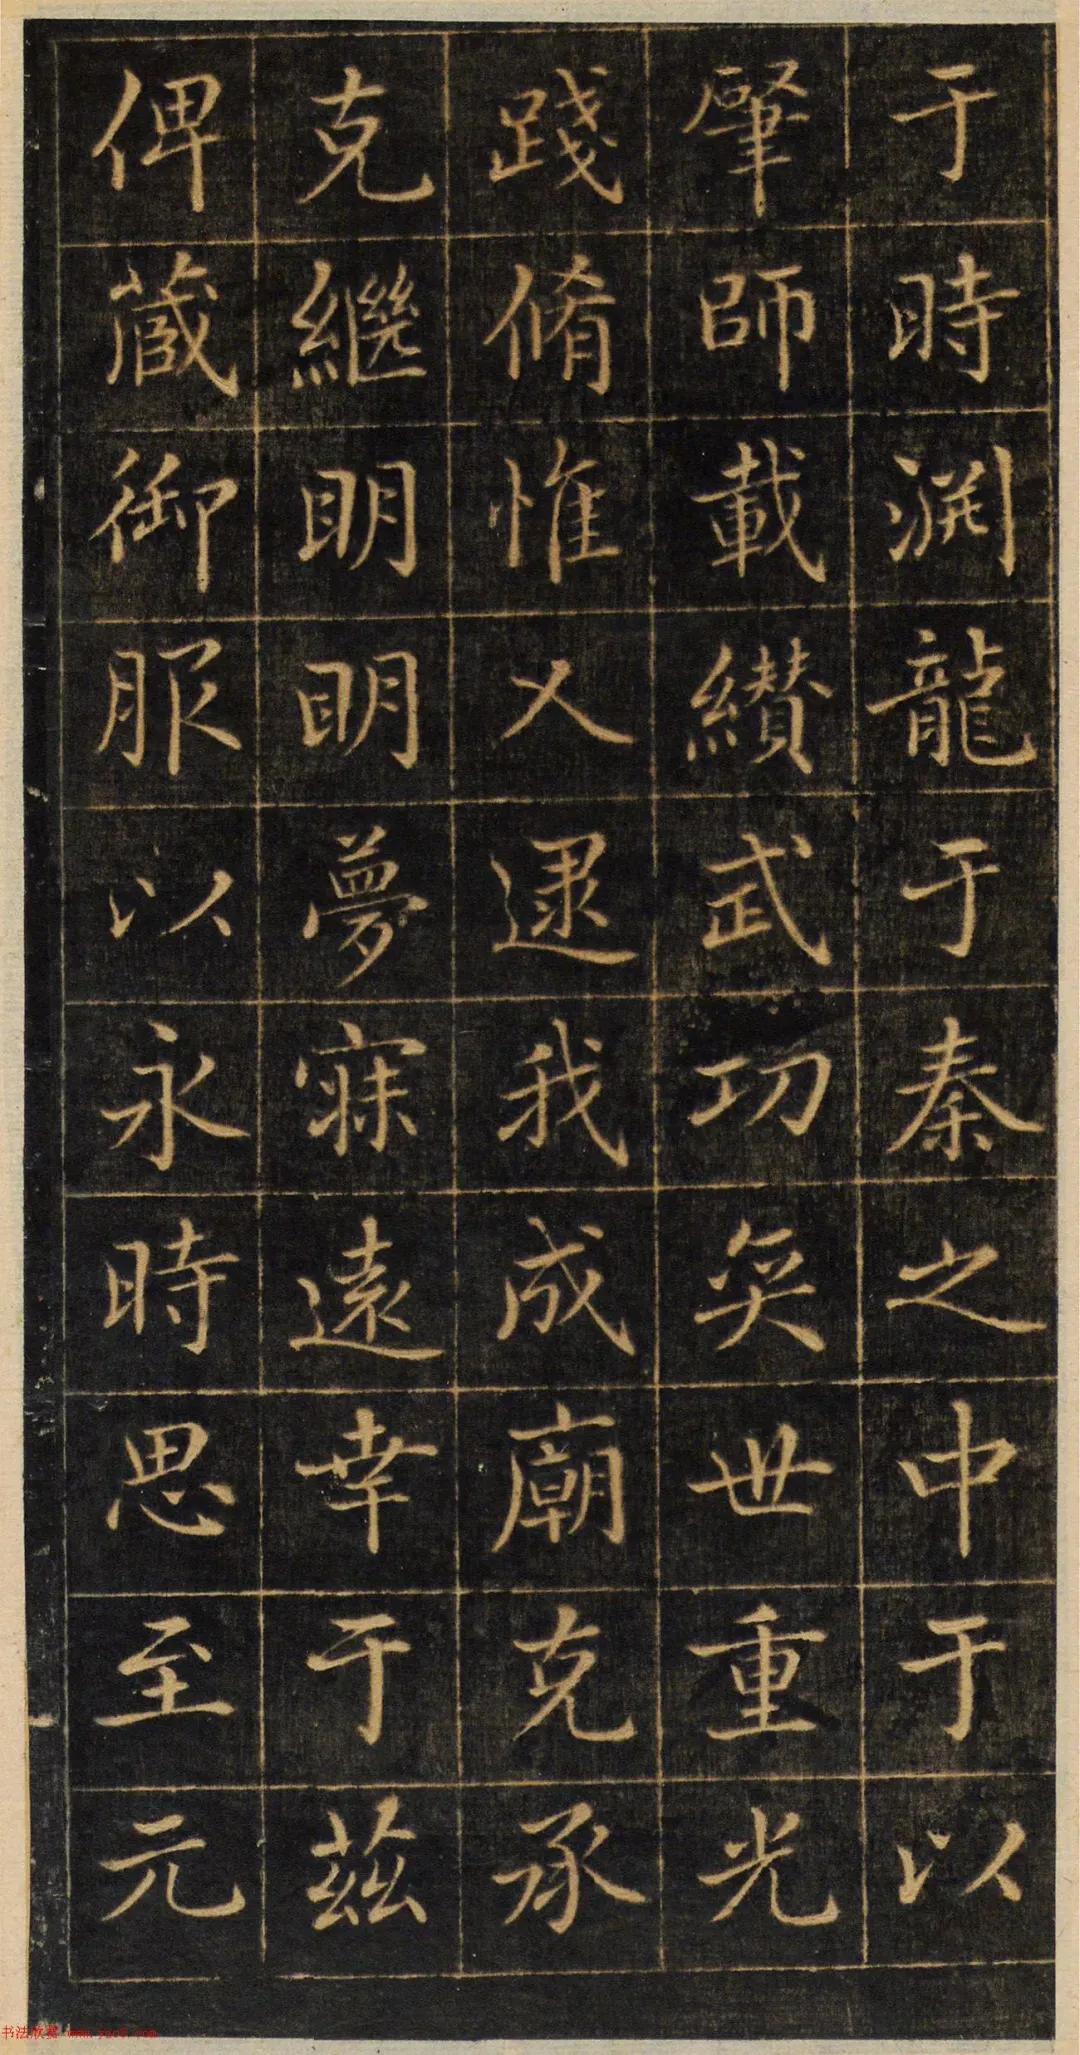 于時渊龍于秦之中于以
肈師載纉武功奕世重光
踐脩惟乂逮我成廟克承
克繼明明夢寐遠幸于茲
俾蔵御服以永時思至元
书法欣赏 www.yac8.com